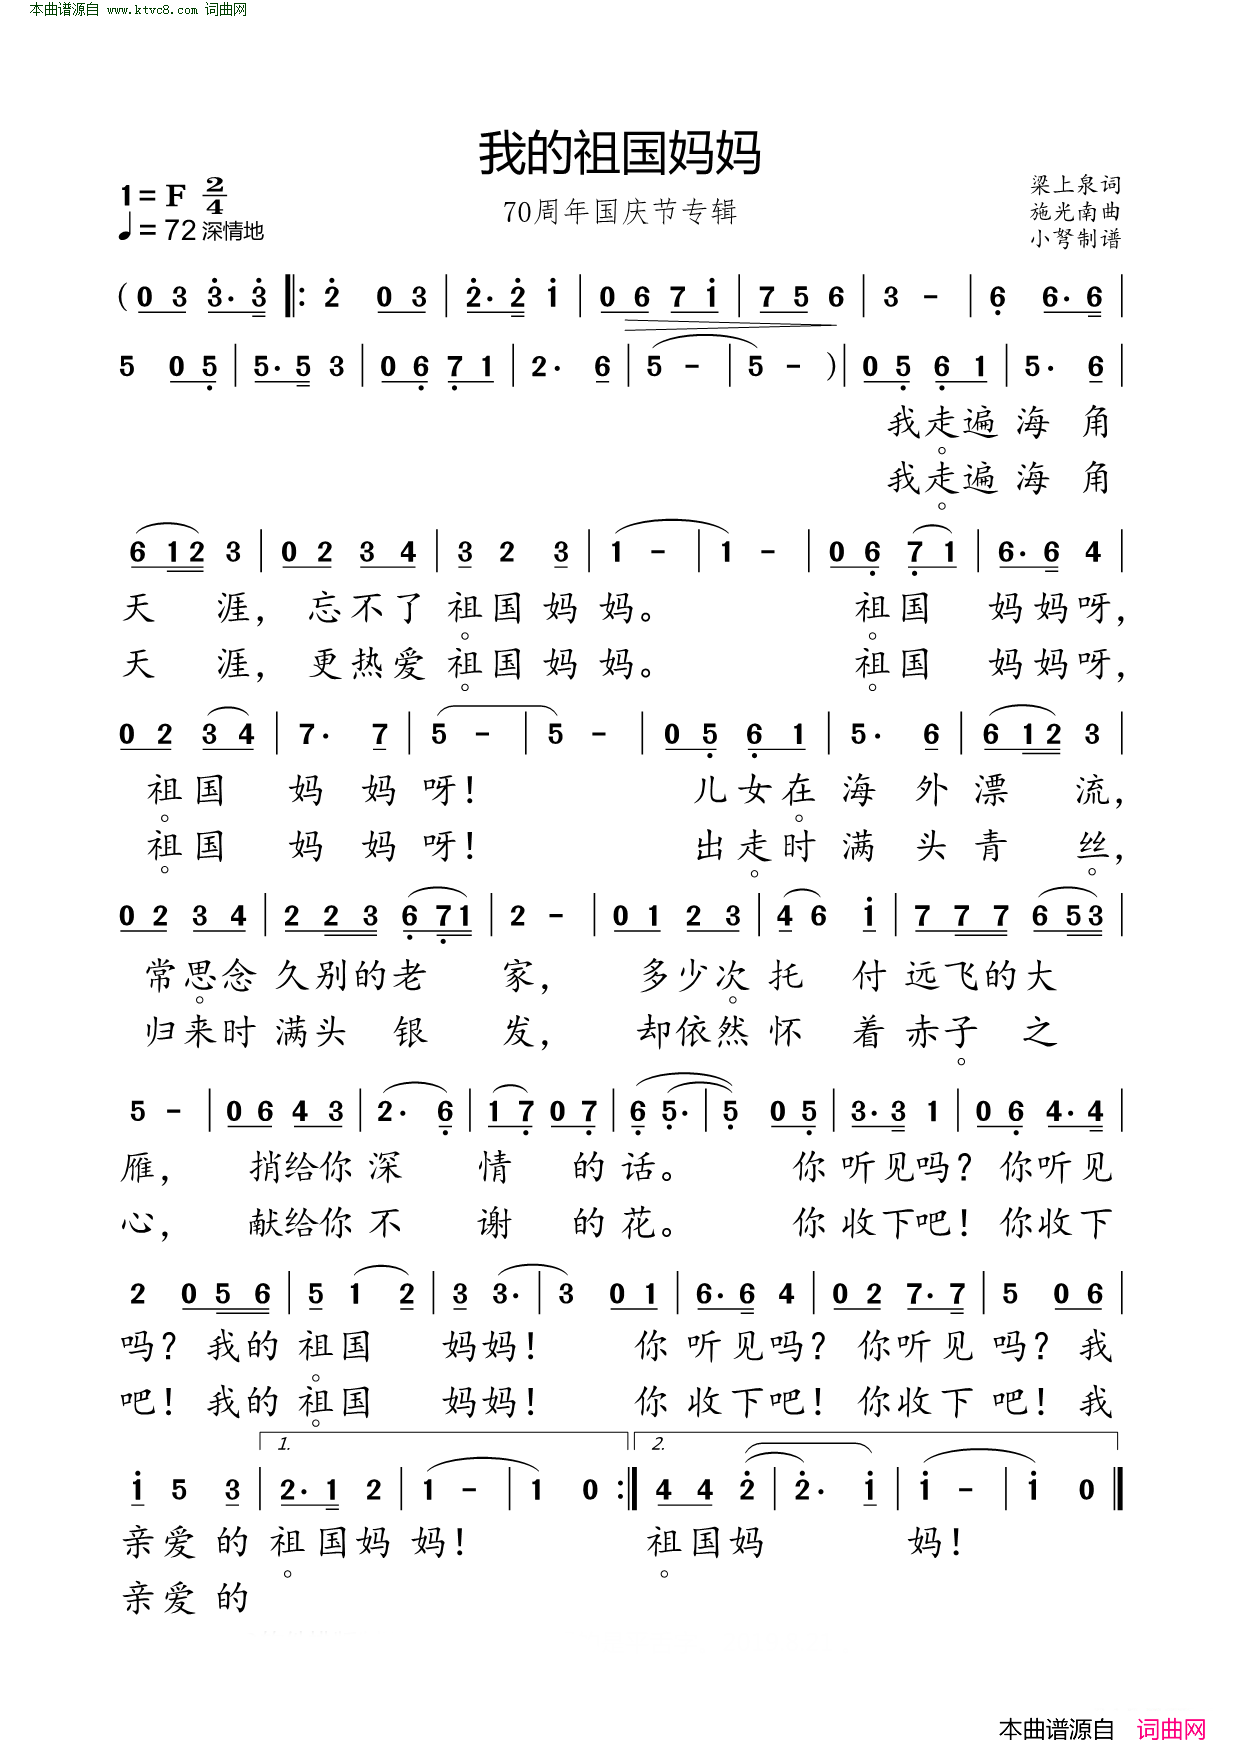 本曲谱源自 www.ktvc8.com 词曲网
我的祖国妈妈
1=F 2/4
♩=72 深情地
70周年国庆节专辑
梁上泉词
施光南曲
小弩制谱
(0 3 3·3 ‖: 2 0 3 | 2·2 1 | 0 6 7 1 | 7 5 6 | 3 - | 6 6·6 |
5 0 5 | 5·5 3 | 0 6 7 1 | 2· 6 | 5 - | 5 - ) | 0 5 6 1 | 5· 6 |
我走遍海角
我走遍海角
6 1 2 3 | 0 2 3 4 | 3 2 3 | 1 - | 1 - | 0 6 7 1 | 6·6 4 |
天涯，忘不了祖国妈妈。 祖国 妈妈呀，
天涯，更热爱祖国妈妈。 祖国 妈妈呀，
0 2 3 4 | 7· 7 | 5 - | 5 - | 0 5 6 1 | 5· 6 | 6 1 2 3 |
祖国 妈妈呀！ 儿女在海外漂流，
祖国 妈妈呀！ 出走时满头青丝，
0 2 3 4 | 2 2 3 6 7 1 | 2 - | 0 1 2 3 | 4 6 1 | 7 7 7 6 5 3 |
常思念久别的老家， 多少次托付远飞的大
归来时满头银发， 却依然怀着赤子之
5 - | 0 6 4 3 | 2· 6 | 1 7 0 7 | 6 5· | 5 0 5 | 3·3 1 | 0 6 4·4 |
雁， 捎给你深情的话。 你听见吗？你听见
心， 献给你不谢的花。 你收下吧！你收下
2 0 5 6 | 5 1 2 | 3 3· | 3 0 1 | 6·6 4 | 0 2 7·7 | 5 0 6 |
吗？我的祖国妈妈！ 你听见吗？你听见吗？我
吧！我的祖国妈妈！ 你收下吧！你收下吧！我
1. 2.
1 5 3 | 2·1 2 | 1 - | 1 0 :‖ 4 4 2 | 2· 1 | 1 - | 1 0 ‖
亲爱的祖国妈妈！ 祖国妈妈！
亲爱的
本曲谱源自 词曲网